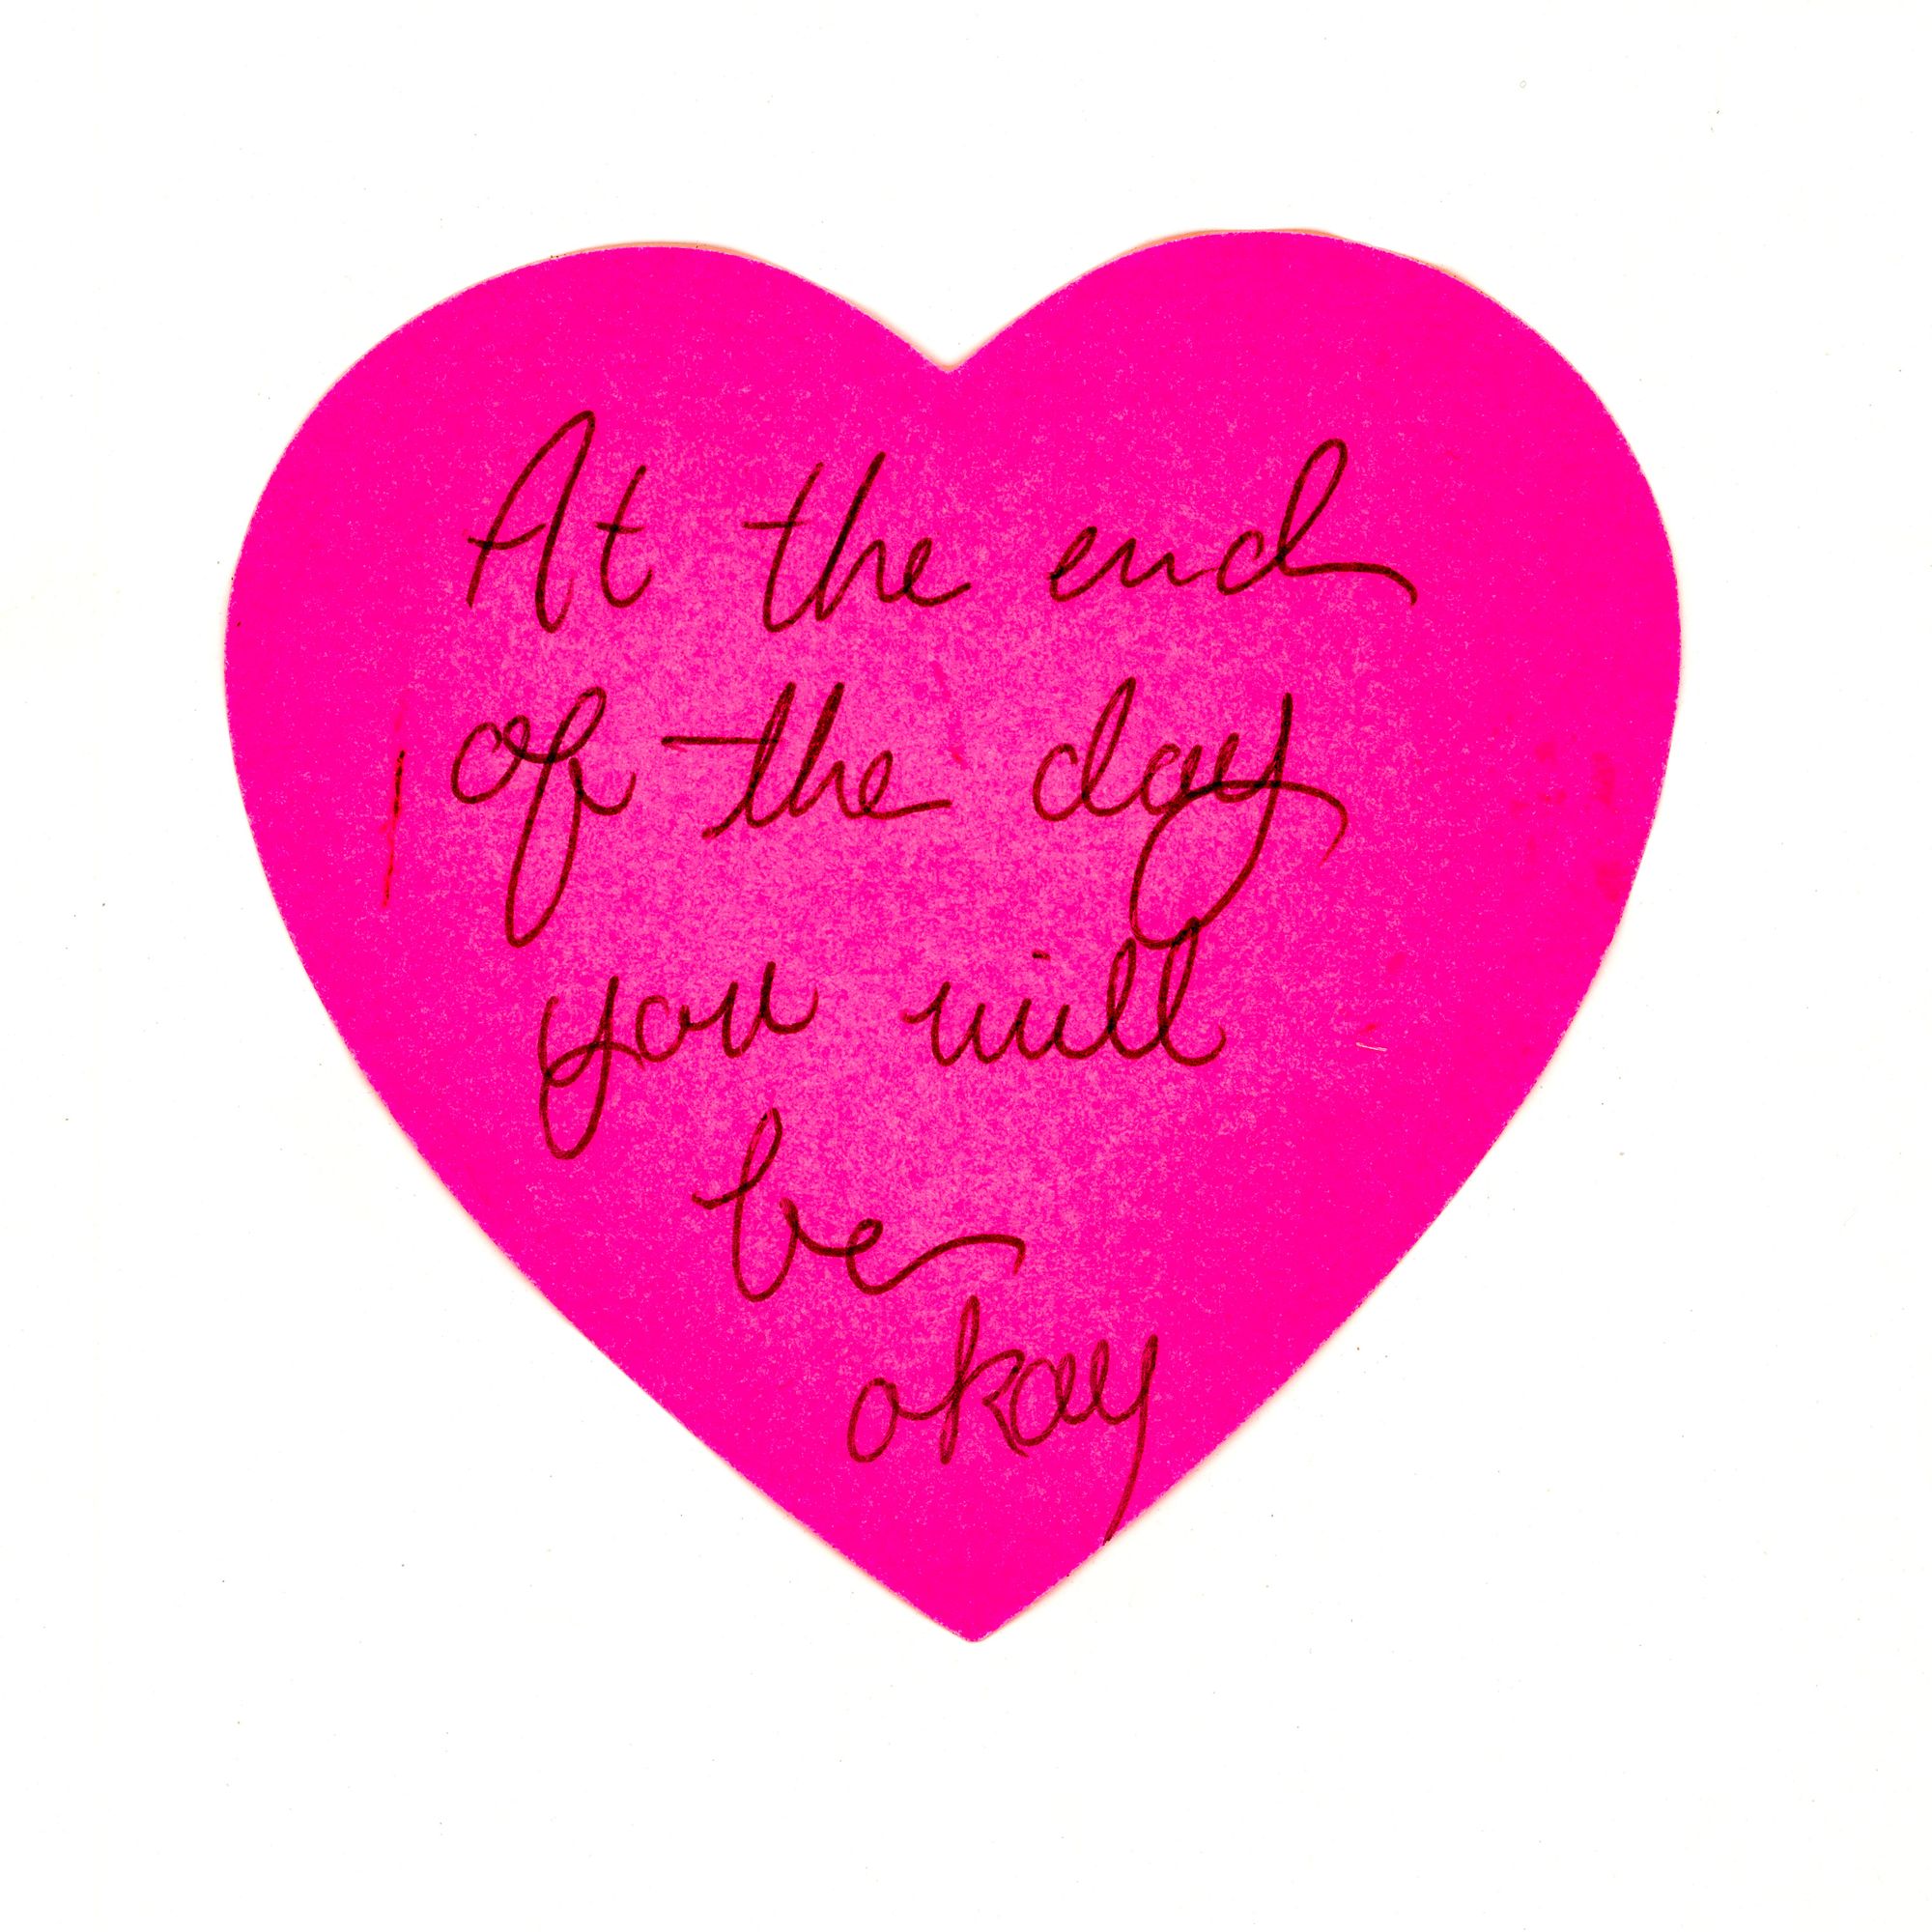 At the end
of the day
you will
be
okay